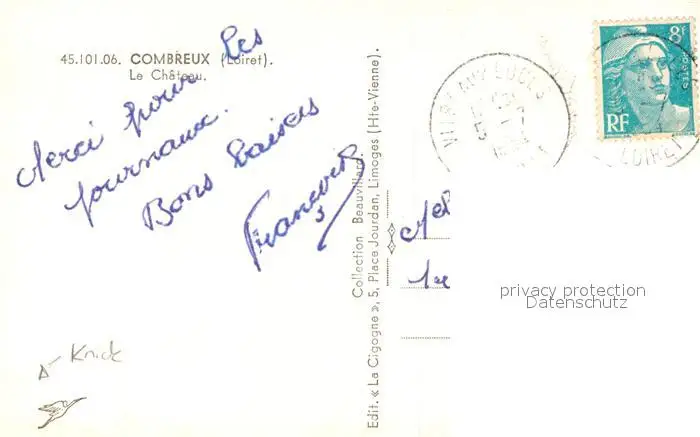 45.101.06. COMBREUX (Loiret).
Le Château.
Merci pour les
journaux.
Bons baisers
Collection Beauvillard
Edit. « La Cigogne », 5, Place Jourdan, Limoges (Hte-Vienne).
8F
POSTES
RF
VITRY AUX LOGES
LOIRET
privacy protection
Datenschutz
Knick